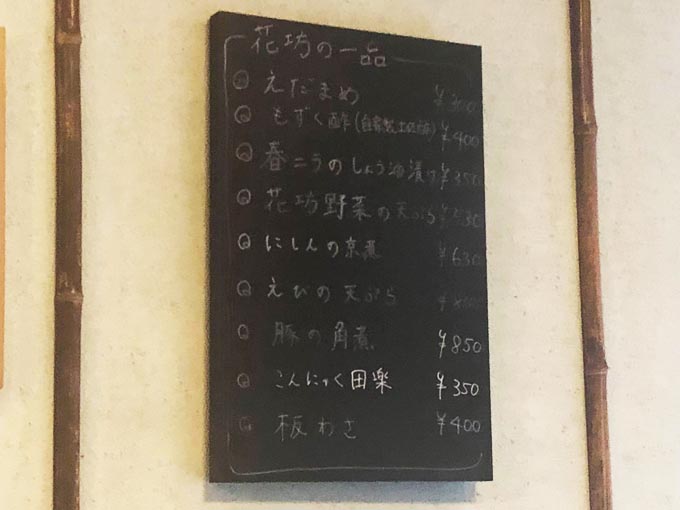 花坊の一品
えだまめ ¥300
もずく酢(自家製土佐酢) ¥400
春ニラのしょう油漬け ¥350
花坊野菜の天ぷら
にしんの京煮 ¥630
えびの天ぷら
豚の角煮 ¥850
こんにゃく田楽 ¥350
板わさ ¥400